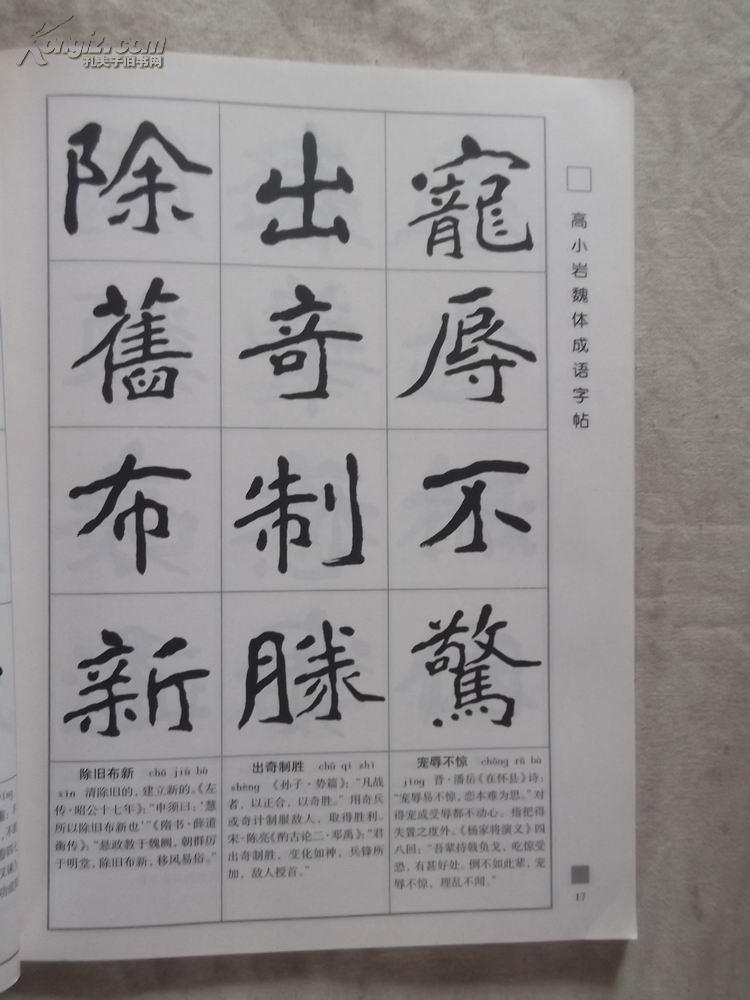 Kongfz.com
孔夫子旧书网
高小岩魏体成语字帖
寵辱不驚
出奇制勝
除舊布新
宠辱不惊 chǒng rǔ bù
jīng 晋·潘岳《在怀县》诗：
“宠辱易不惊，恋本难为思。”对
得宠或受辱都不动心。指把得
失置之度外。《杨家将演义》四
八回：“吾辈持戟负戈，吃惊受
恐，有甚好处。倒不如此辈，宠
辱不惊，理乱不闻。”
出奇制胜 chū qí zhì
shèng 《孙子·势篇》：“凡战
者，以正合，以奇胜。”用奇兵
或奇计制服敌人，取得胜利。
宋·陈亮《酌古论二·邓禹》：“君
出奇制胜，变化如神，兵锋所
加，敌人授首。”
除旧布新 chú jiù bù
xīn 清除旧的，建立新的。《左
传·昭公十七年》：“申须曰：‘彗
所以除旧布新也’”《隋书·薛道
衡传》：“悬政教于魏阙，朝群历
于明堂，除旧布新，移风易俗。”
17